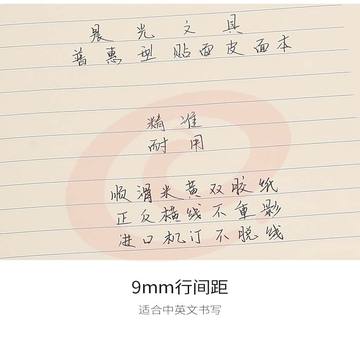 晨光文具
普惠型贴面皮面本
精准
耐用
顺滑米黄双胶纸
正反横线不重影
进口机订不脱线
9mm行间距
适合中英文书写